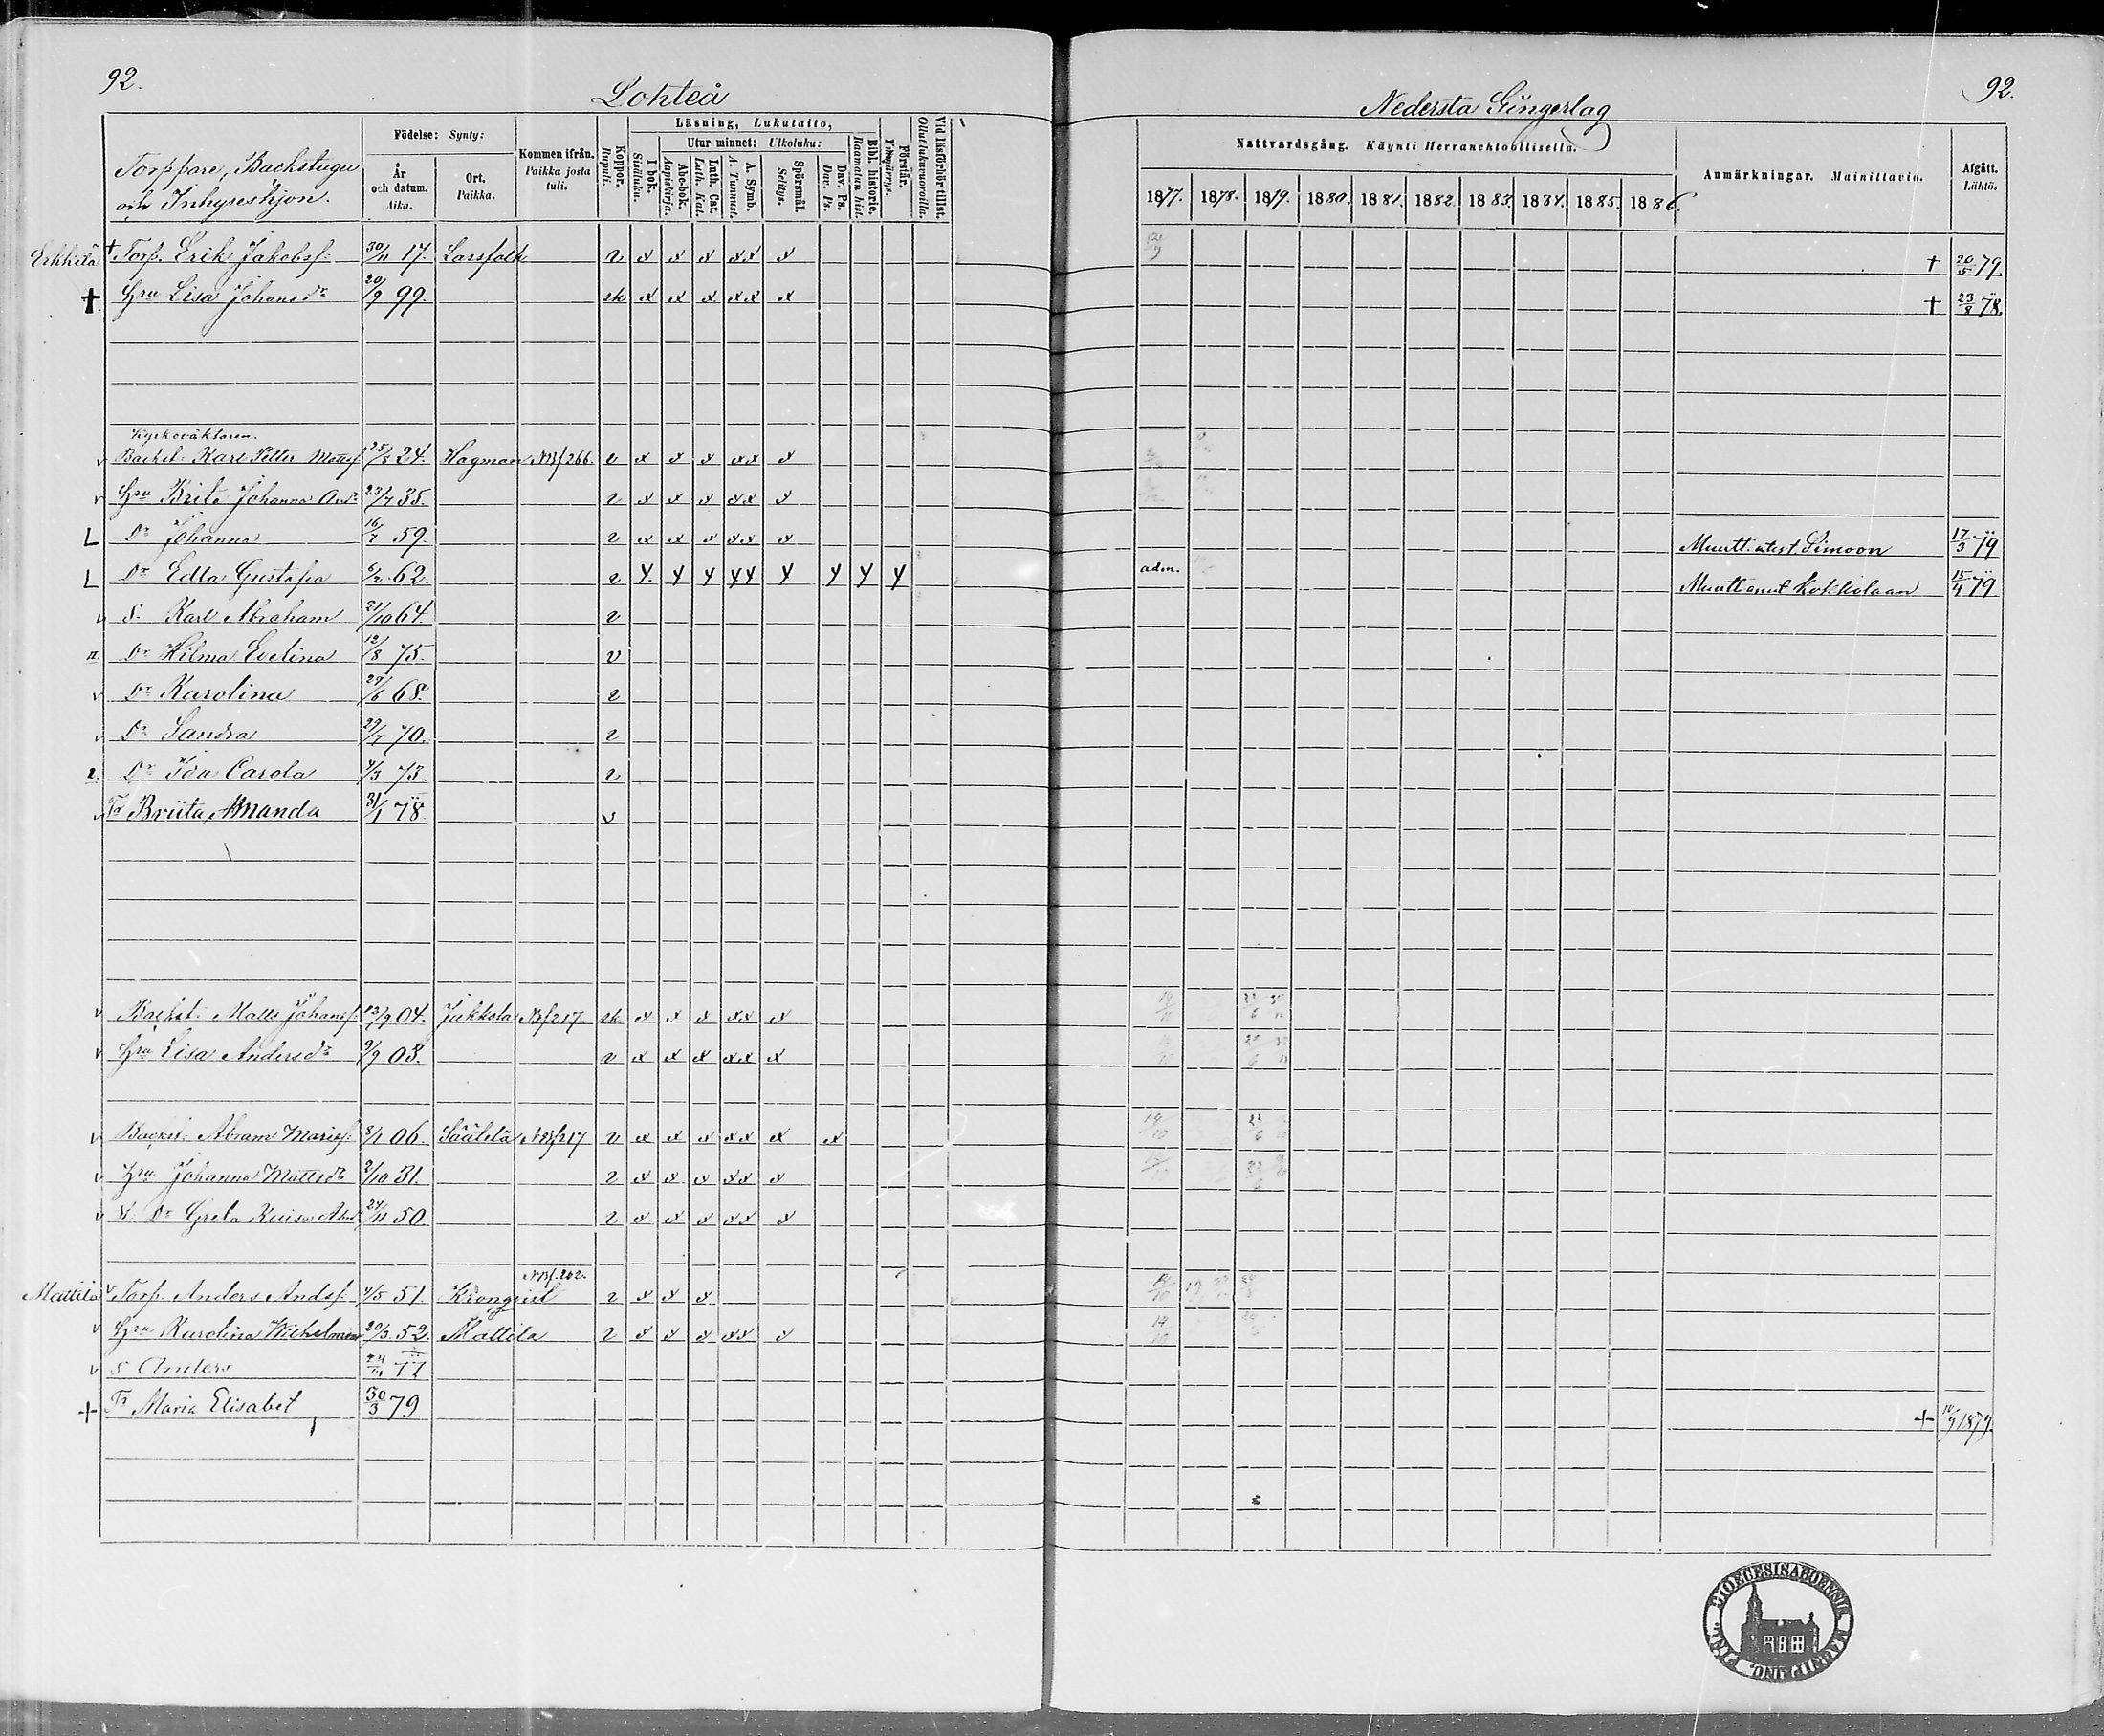 92.
Lohteå
Torppare, Backstugu
och Inhyseshjon.
Födelse: Synty:
År och datum. Aika.
Ort. Paikka.
Kommen ifrån. Paikka josta tuli.
Koppor. Rupuli.
Läsning, Lukutaito,
I bok. Sisäluku.
Utur minnet: Ulkoluku:
Abc-bok. Aapiskirja.
Luth. Cat. Luth. Kat.
A. Symb. A. Tunnust.
Spörsmål. Selitys.
Dav. Ps. Dav. Ps.
Bibl. historie. Raamatun hist.
Förstår. Ymmärrys.
Vid läsförhör tillst. Ollut lukuvuoroilla.
Erkkilä † Torp. Erik Jakobsf. 30/11 17. Larsfolk v x x x xx x
† Hru Lisa Johansdr 20/9 99. sk x x x xx x
Kyrkoväktaren.
v Backst. Karl Petter Mattsf 25/5 24. Hagman NBf 266. v x x x xx x
v Hru Brita Johanna Andr 23/7 35. v x x x xx x
L Dr Johanna 16/7 59. v x x x xx x
L Dr Edla Gustafva 6/2 62. v y. y y yy y y y y
v S. Karl Abraham 21/10 64. v
II. Dr Hilma Evelina 12/8 75. v
v Dr Karolina 29/6 68. v
v Dr Sandra 29/7 70. v
2. Dr Ida Carola 4/3 73. v
v Tr Briita Amanda 31/1 78 v
v Backst. Matts Johansf. 13/9 04. Jukkola NBf 217. sk x x x xx x
v Hru Lisa Andersdr 9/9 08. v x x x xx x
v Backst. Abram Mariesf. 8/1 06. Säätelä NBf 217 v x x x xx x x
v Hru Johanna Mattsdr 2/10 31. v x x x xx x
v Dr Greta Kaisa 24/11 50. v x x x xx x
NBf. 202.
Mattila v Torp. Anders Andsf. 4/5 51. Kronqvist v x x x
v Hru Karolina Wilhelmina 20/3 52. Mattila v x x x xx x
v S Anders 77
+ Tr Maria Elisabet 30/3 79
Nedersta Gingerlag
92.
Nattvardsgång. Käynti Herranehtoollisella.
1877. 1878. 1879. 1880. 1881. 1882. 1883. 1884. 1885. 1886.
Anmärkningar. Mainittavia.
Afgått. Lähtö.
† 20/5 79.
† 23/8 78.
Muutt. Simoon 17/3 79
adm. Muuttanut Kokkolaan 15/4 79
+ 1879.
DIOECESIS ABOENSIS MAGNI FINL.